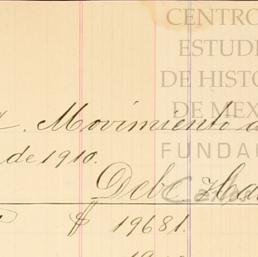 CENTRO
ESTUDI
DE HISTO
DE MEX
FUNDAC
Movimiento
de 1910.
Debe
$ 19681.